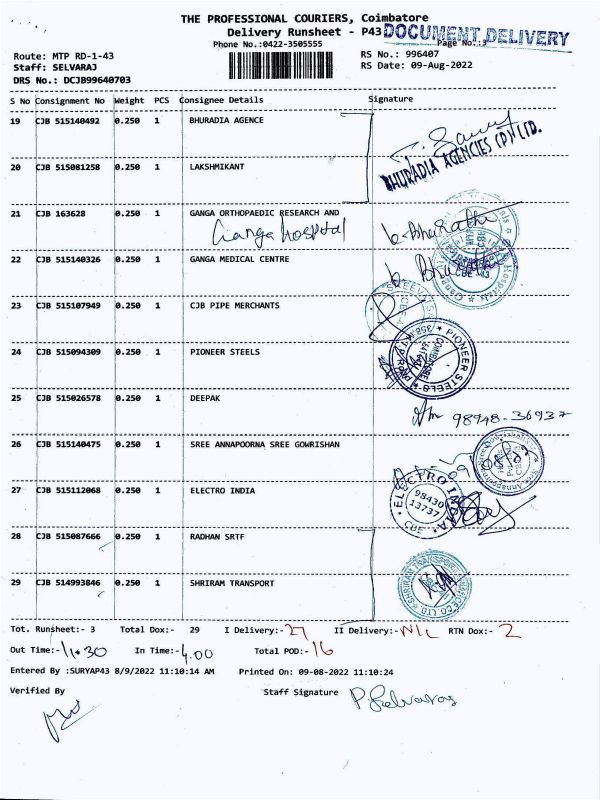 THE PROFESSIONAL COURIERS, Coimbatore
Delivery Runsheet - P43 DOCUMENT DELIVERY
Phone No.:0422-3505555 Page No.:3
Route: MTP RD-1-43 RS No.: 996407
Staff: SELVARAJ RS Date: 09-Aug-2022
DRS No.: DCJB99640703
S No Consignment No Weight PCS Consignee Details Signature
19 CJB 515140492 0.250 1 BHURADIA AGENCE
BHURADIA AGENCIES (P) LTD.
20 CJB 515081258 0.250 1 LAKSHMIKANT
21 CJB 163628 0.250 1 GANGA ORTHOPAEDIC RESEARCH AND
Ganga hospital b. Bharathi
22 CJB 515140326 0.250 1 GANGA MEDICAL CENTRE
b Bharathi
23 CJB 515107949 0.250 1 CJB PIPE MERCHANTS
24 CJB 515094309 0.250 1 PIONEER STEELS
PIONEER STEELS
COIMBATORE
25 CJB 515026578 0.250 1 DEEPAK
98948-36937
26 CJB 515140475 0.250 1 SREE ANNAPOORNA SREE GOWRISHAN
27 CJB 515112068 0.250 1 ELECTRO INDIA
ELECTRO INDIA
98430
13737
CBE
28 CJB 515087666 0.250 1 RADHAN SRTF
29 CJB 514993846 0.250 1 SHRIRAM TRANSPORT
Tot. Runsheet:- 3 Total Dox:- 29 I Delivery:- 27 II Delivery:- NIL RTN Dox:- 2
Out Time:- 11.30 In Time:- 4.00 Total POD:- 16
Entered By :SURYAP43 8/9/2022 11:10:14 AM Printed On: 09-08-2022 11:10:24
Verified By Staff Signature P Selvaraj